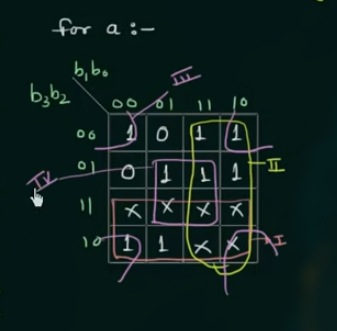 for a :-
b₁b₀
b₃b₂
III
00 01 11 10
00 1 0 1 1
01 0 1 1 1 II
IV
11 x x x x
10 1 1 x x I